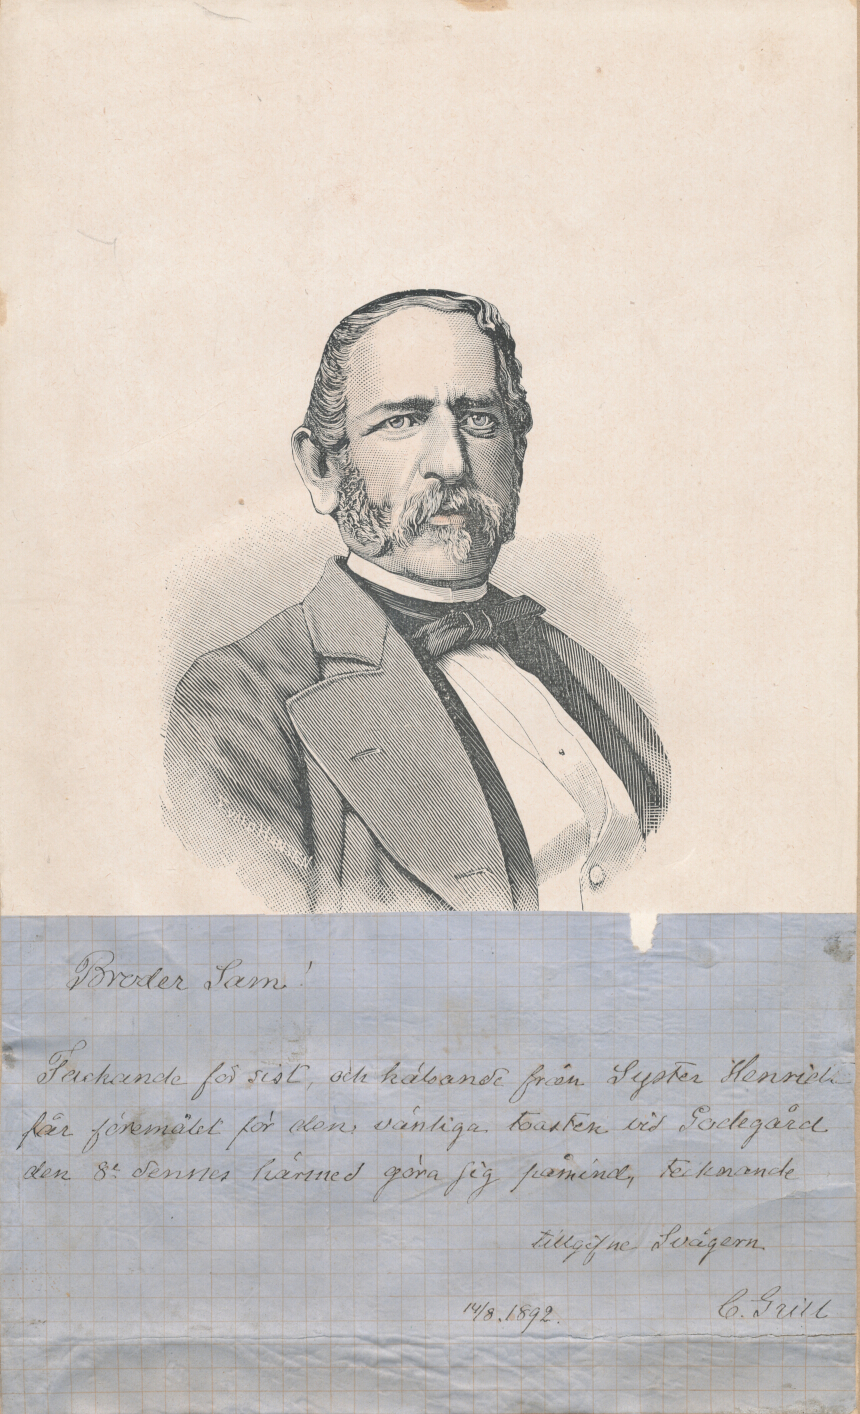 Broder Sam!
Tackande for sist, och hälsande från Syster Henriette
får föremålet för den vänliga toasten vid Godegård
den 8e dennes härmed göra sig påmind, tecknande
tillgifne Svågern
14/8.1892. C. Grill